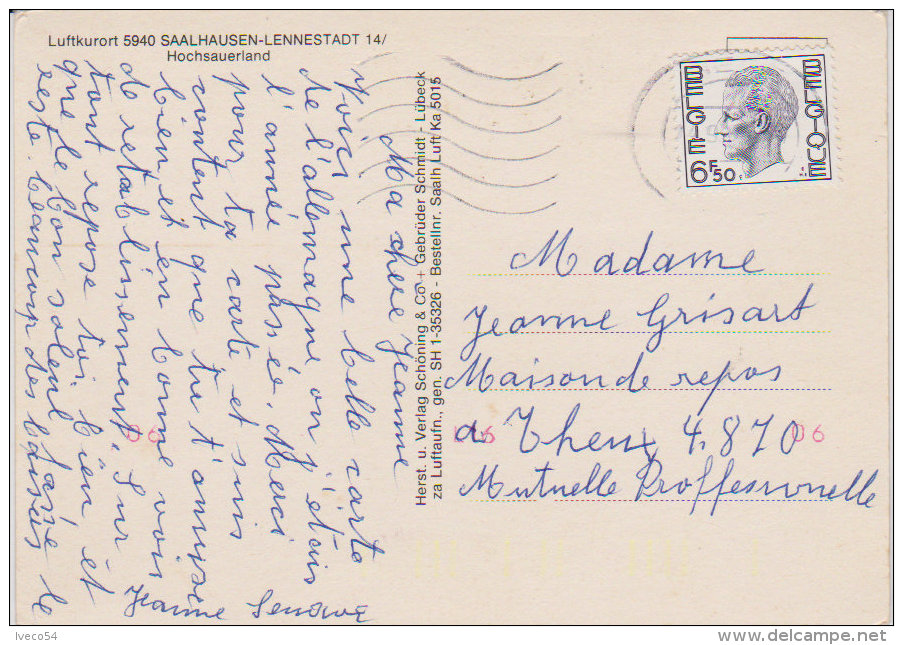 Luftkurort 5940 SAALHAUSEN-LENNESTADT 14/
Hochsauerland
Ma chere Jeanne
Voici une belle carte
de l'allemagne ou j'étais
l'année passée. Merci
pour ta carte et suis
content que tu t'amuse
bien et en bonne voie
de retablissement. Sur
tout repose toi bien et
que le bon soleil fasse le
reste. beaucoup des baisers
Jeanne
Herst. u. Verlag Schöning & Co + Gebrüder Schmidt - Lübeck
za Luftaufn., gen. SH 1-35326 - Bestellnr. Saalh Luft/Ka 5015
BELGIE
BELGIQUE
6F50
Madame
Jeanne Grisart
Maison de repos
de Theux 4.870
Mutuelle Proffessionelle
06
06
06
Iveco54
delcampe.net